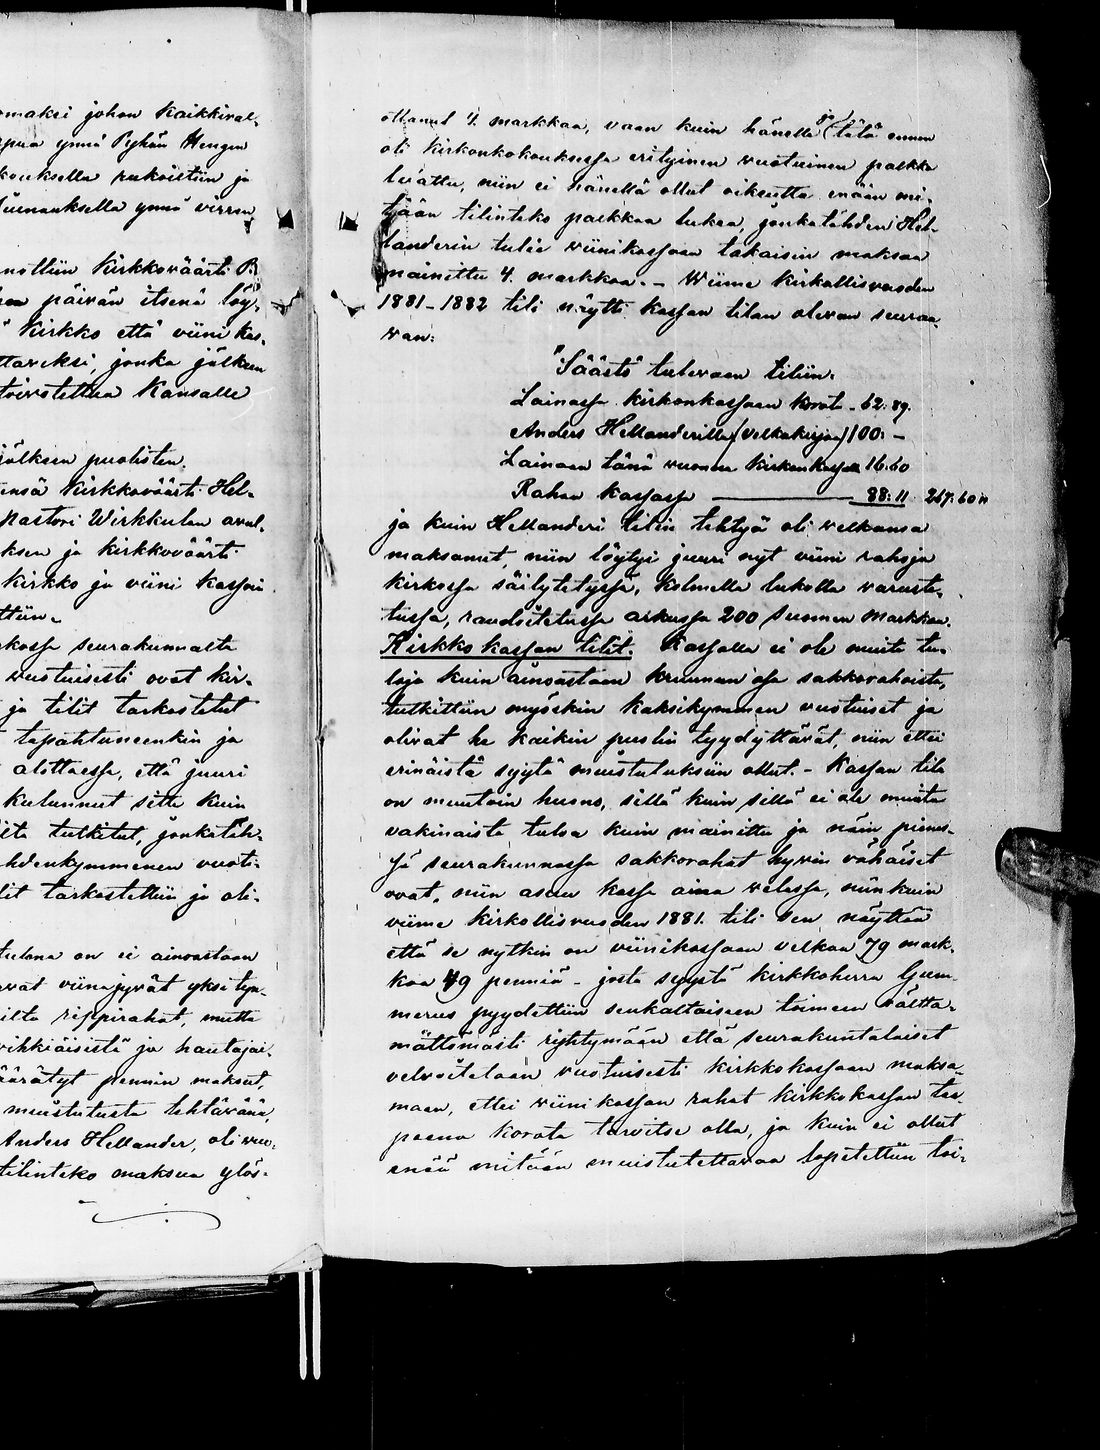 omaksi johon Kaikkival-
apua ynnä Pyhän Hengen
rukoiltiin ja
ynnä virren
Kirkkoväärti P.
päivän itsenä löy-
Kirkko että viini Kas-
ttaviksi, jonka jälkeen
toivotettua Kansalle
jälkeen puolisten
ensä Kirkkoväärti Hel-
Pastori Wirkkulan avul-
ksen ja Kirkkoväärti
Kirkko ja viini Kassain
ttiin.
kossa seurakunnalta
vuotuisesti ovat kir-
ja tilit tarkastetut
tapahtuneenkin ja
alottaessa, että juuri
kulunnut sitte kuin
ilta tutkitut, jonkatäh-
hdenkymmenen vuoti-
lit tarkastettiin ja oli-
tulona on ei ainoastaan
ovat viinajyvät yksityi-
ilta rippirahat, mutta
vihkiäisistä ja hautajai-
äärätyt pennin maksut,
muistutusta tehtävänä,
Anders Hellander, oli vuo-
tilinteko maksua ylös-
ottanut 4. markkaa, vaan kuin hänelle jo tätä ennen
oli Kirkonkokouksessa erityinen vuotuinen palkka
luvattu, niin ei hänellä ollut oikeutta enään mi-
tään tilinteko palkkaa lukea, jonkatähden Hel-
landerin tulee viinikassaan takaisin maksaa
mainittu 4. markkaa. - Wiime Kirkollisvuoden
1881-1882 tili näytti kassan tilan olevan seuraa-
van:
"Säästö" tulevaan tiliin.
Lainassa Kirkonkassaan Korota - 62:89.
Anders Hellanderilla (velkakirjaa) 100: -
Lainaan tänä vuonna Kirkonkassaan 16:60
Rahaa Kassassa 88:11 267:60
ja kuin Hellanderi tilin tehtyä oli velkansa
maksanut, niin löytyi juuri nyt viini rahoja
kirkossa säilytetyssä, Kolmella lukolla varuste-
tussa, raudoitetussa arkussa 200 Suomen Markkaa.
Kirkko kassan tilit. Kassalla ei ole muita tu-
loja kuin ainoastaan kruunun osa sakkorahoista,
tutkittiin myöskin kaksikymmen vuotuiset ja
olivat he kaikin puolin tyydyttävät, niin ettei
erinäistä syytä muistutuksiin ollut. - Kassan tila
on muutoin huono, sillä kuin sillä ei ole muita
vakinaista tuloa kuin mainittu ja näin pienes-
sä seurakunnassa sakkorahat hyvin vähäiset
ovat, niin asuu kassa aina velassa, niinkuin
viime Kirkollisvuoden 1881. tili sen näyttää
että se nytkin on viinikassaan velkaa 79 mark-
kaa 49 penniä - josta syystä Kirkkoherra Gum-
merus pyydettiin senkaltaiseen toimeen vältta-
mättömästi ryhtymään että seurakuntalaiset
velvoitetaan vuotuisesti kirkkokassaan maksa-
maan, ettei viinikassan rahat kirkkokassan tar-
peena Korota tarvitse olla, ja kuin ei ollut
enää mitään muistutettavaa lopetettiin toi-